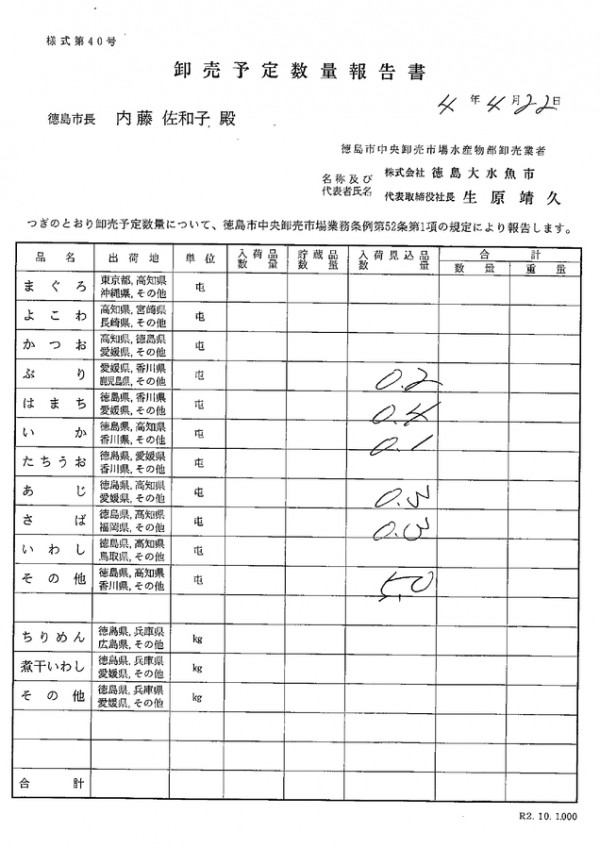 様式第40号
卸売予定数量報告書
4年4月22日
徳島市長 内藤 佐和子 殿
徳島市中央卸売市場水産物部卸売業者
名称及び 株式会社 徳島大水魚市
代表者氏名 代表取締役社長 生原靖久
つぎのとおり卸売予定数量について、徳島市中央卸売市場業務条例第52条第1項の規定により報告します。
品名 出荷地 単位 入荷品数量 貯蔵品数量 入荷見込品数量 合計
数量 重量
まぐろ 東京都, 高知県 屯
沖縄県, その他
よこわ 高知県, 宮崎県 屯
長崎県, その他
かつお 高知県, 徳島県 屯
愛媛県, その他
ぶり 愛媛県, 香川県 屯 0.2
鹿児島県, その他
はまち 徳島県, 香川県 屯 0.4
愛媛県, その他
いか 徳島県, 高知県 屯 0.1
香川県, その他
たちうお 徳島県, 愛媛県 屯
香川県, その他
あじ 徳島県, 高知県 屯 0.3
愛媛県, その他
さば 徳島県, 高知県 屯 0.3
福岡県, その他
いわし 徳島県, 高知県 屯
鳥取県, その他
その他 徳島県, 高知県 屯 5.0
香川県, その他
ちりめん 徳島県, 兵庫県 kg
広島県, その他
煮干いわし 徳島県, 兵庫県 kg
愛媛県, その他
その他 徳島県, 兵庫県 kg
愛媛県, その他
合計
R2.10.1.000